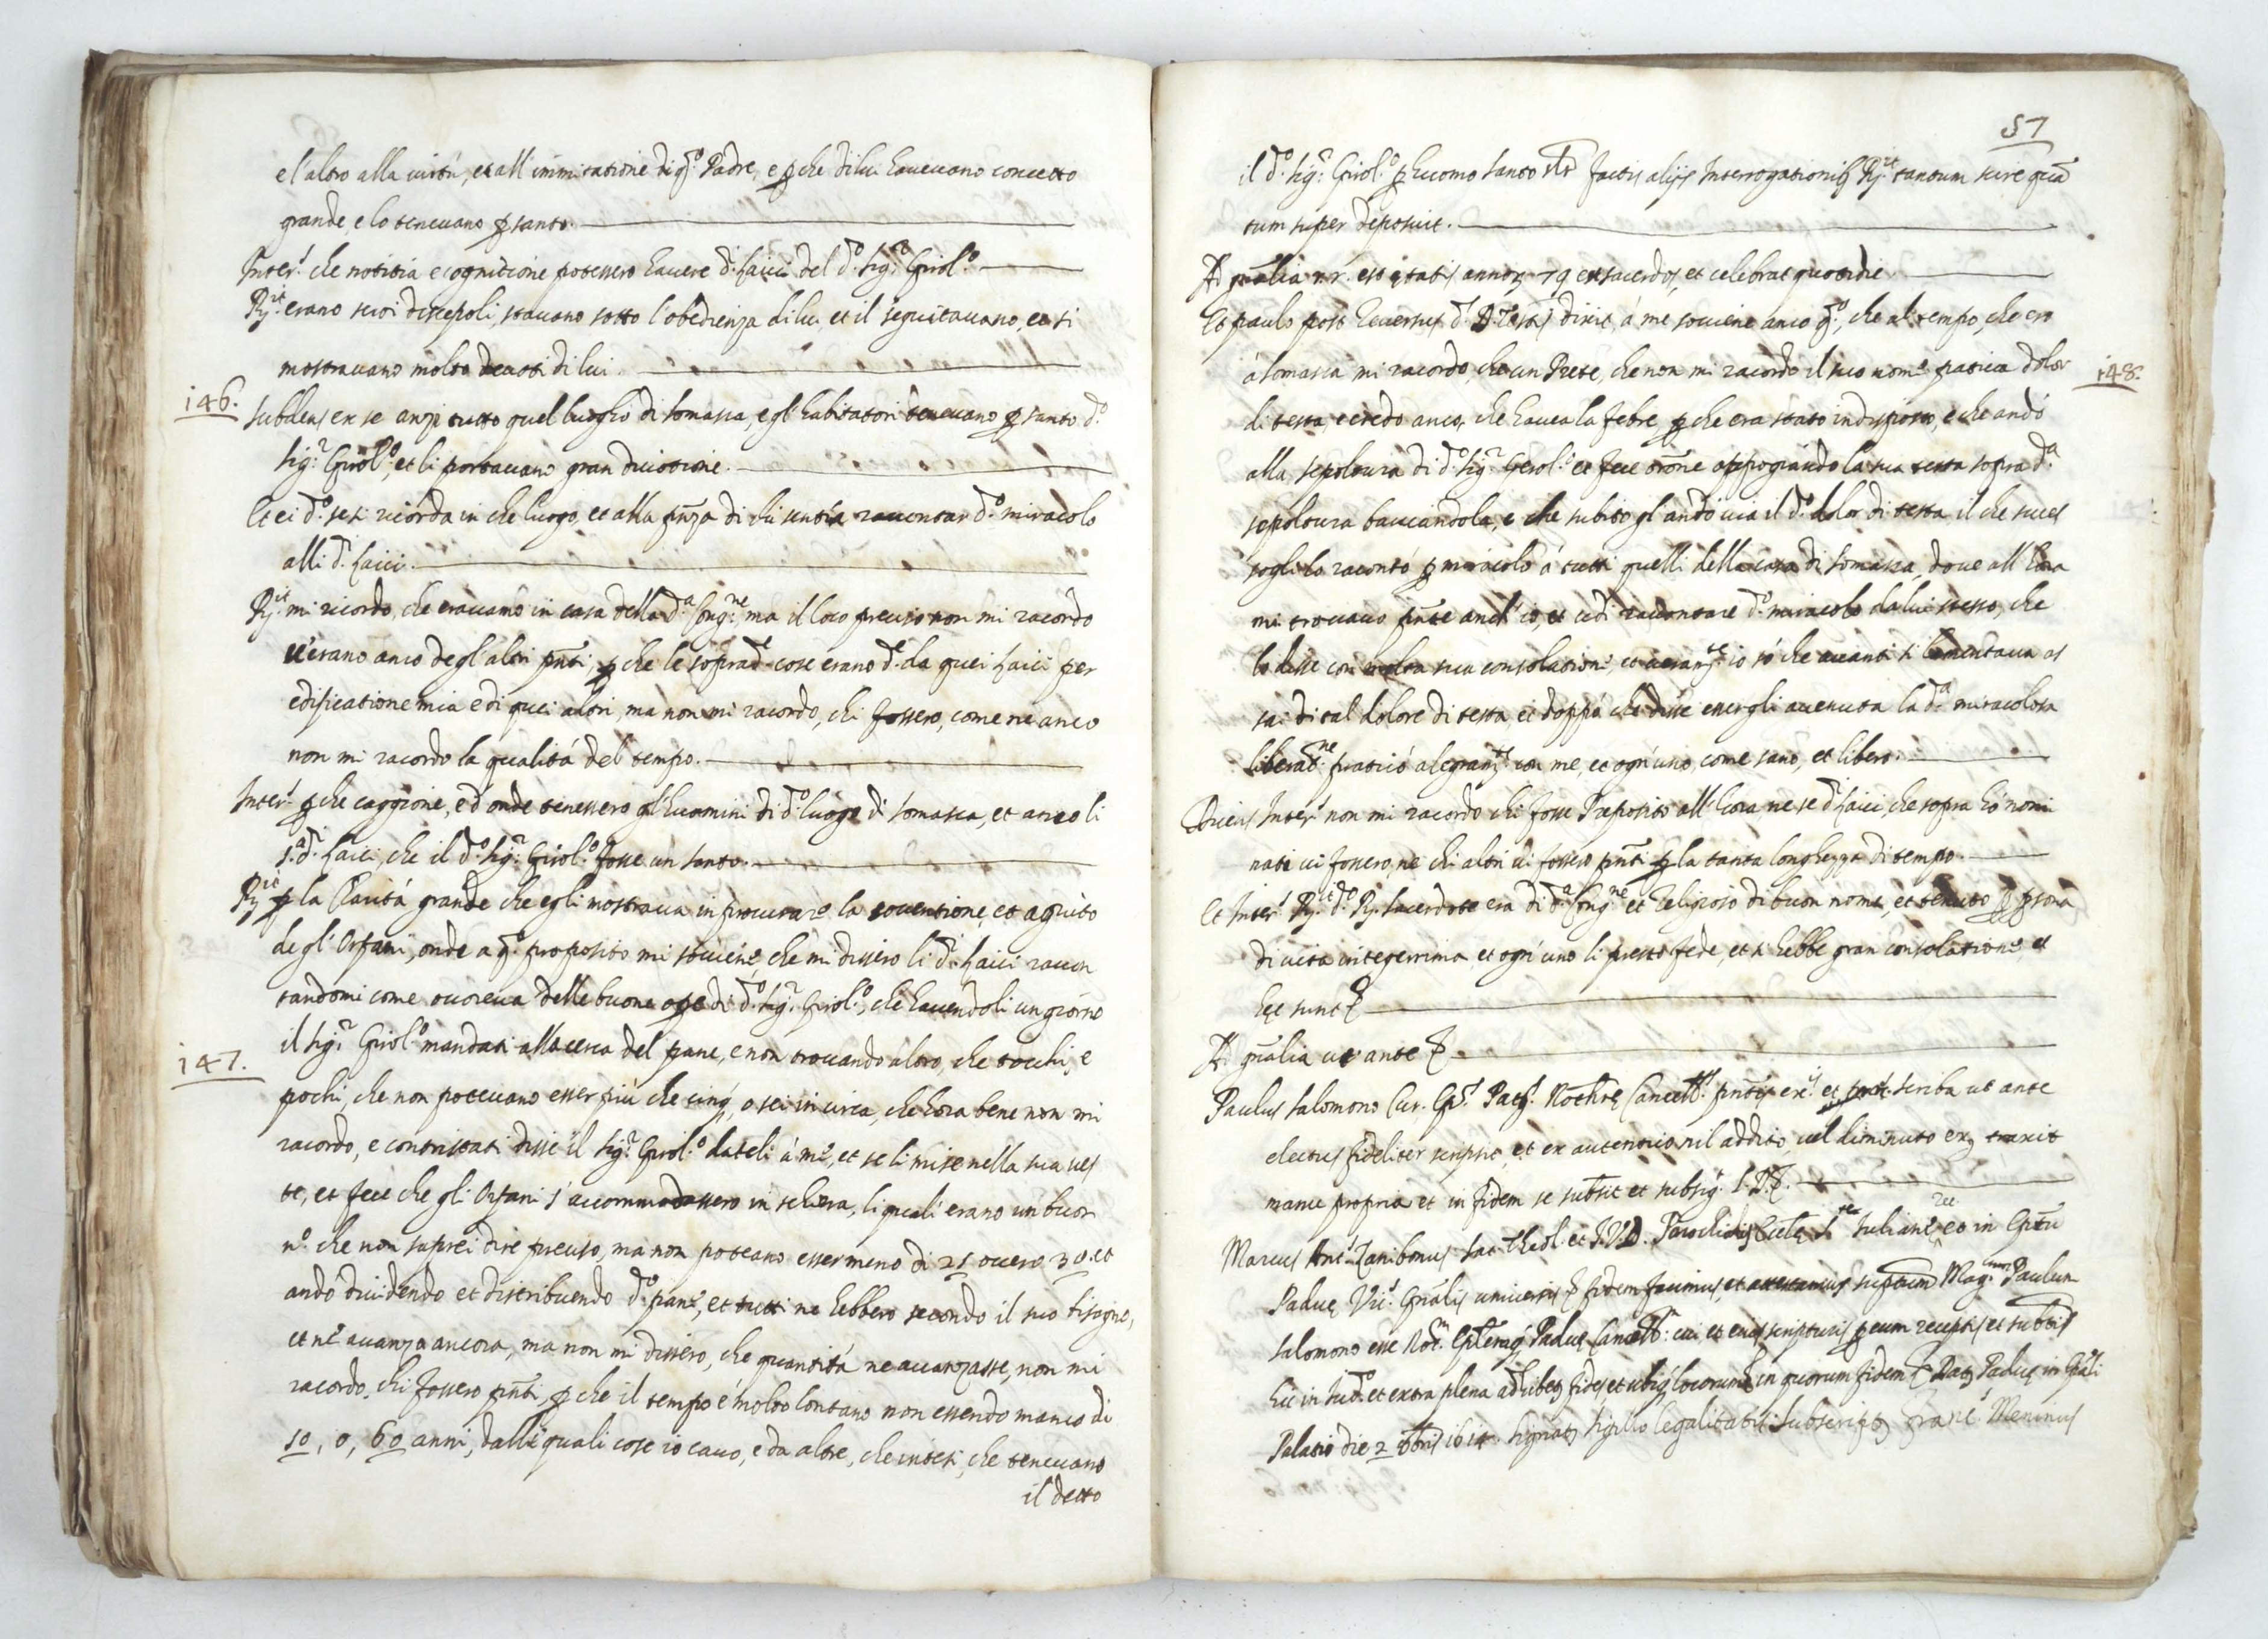 e l'altro alla virtù, et all' immitatione di q.o Padre, e p che di lui havevano concetto
grande, e lo tenevano p santo.
Inter.s che notitia e cognitione potessero havere d.i Laici del d.o Sig.r Girol.o
R.it erano suoi discepoli, stavano sotto l'obedienza di lui, et il seguitavano, et si
mostravano molto devoti di lui.
146.
subdens ex se anzi tutto quel luogho di Somasca, e gl' habitatori tenevano p santo d.o
Sig.r Girol.o, et li portavano gran divotione.
Et ei d.o se si ricorda in che luogo, et alla pnza di chi sentia raccontar d.o miracolo
alli d.i Laici.
R.it mi ricordo, che eravamo in casa della d.a Cong.ne, ma il loco preciso non mi racordo
v'erano anco degl' altri pnti p che le soprad.e cose erano d.e da quei Laici per
edificatione mia e di quei altri, ma non mi racordo, chi fossero, come ne anco
non mi racordo la qualità del tempo.
Inter.s p che caggione, e d'onde tenessero gl' huomini di d.o luogo di Somasca, et anco li
s.a d.i Laici, che il d.o Sig.r Girol.o fosse un santo.
R.it p la Carità grande che egli mostrava in procurare la soventione, et agiuto
degl' Orfani, onde a q.o proposito mi soviene, che mi dissero li d.i Laici racon
tandomi come occoreva delle buone ope di d.o Sig.r Girol.o, che havendoli un giorno
147.
il Sig.r Girol.o mandati alla cerca del pane, e non trovando altro, che tocchi, e
pochi, che non potevano esser più che cinq, o sei in circa, che hora bene non mi
racordo, e contristati disse il Sig.r Girol.o dateli à me, et se li mise nella sua ves
te, et fece che gli Orfani s'accommodassero in schiera, li quali erano un buon
n.o che non saprei dire preciso, ma non poteano esser meno di 25 overo 30. et
andò dividendo et distribuendo d.o pane, et tutti ne hebbero secondo il suo bisogno,
et ne avanzò ancora, ma non mi dissero, che quantità ne avanzasse, non mi
racordo, chi fossero pnti, p che il tempo è molto lontano non essendo manco di
50, o, 60 anni, dalle quali cose io cavo, e da altre, che intesi, che tenevano
il detto
57
il d.o Sig.r Girol.o p huomo santo factis alijs Interrogationib R.it tantum scire quã
tum super deposuit.
Ad gñalia r.r. est ętatis annor 79 est sacerdos, et celebrat quotidie
Et paulo post reversus d. testis dixit, à me soviene anco q.o, che al tempo, che ero
148.
à Somasca mi racordo, che un Prete, che non mi racordo il suo nome pativa dolor
di testa, e credo anco, che havea la febre, p che era stato indisposto, e che andò
alla sepoltura di d.o Sig.r Gerol.o et fece orõne appogiando la sua testa sopra d.a
sepoltura bacciandola, e che subito gl' andò via il d.o dolor di testa il che succes
sogli lo racontò p miracolo à tutti quelli della casa di Somasca, dove all' hora
mi trovavo pñte anch' io, et udi raccontare d.o miracolo da lui stesso, che
lo disse con molta sua consolatione, et veram.te io sò che avanti si lamentava as
sai di tal dolore di testa, et doppò che disse essergli avenuta la d.a miracolosa
liberat.ne praticò alegram.te con me, et ogn' uno, come sano, et libero.
Dicens Inter.s non mi racordo chi fosse Preposito all' hora, ne se d.i Laici, che sopra hò nomi
nati vi fossero, ne chi altri vi fossero pñti p la tanta longhezza di tempo.
Et Inter.s R.it d.o R. Sacerdote era di d.a Cong.ne et Religioso di buon nome, et tenuto p psona
di vita integerrima, et ogn' uno li prestò fede, et si hebbe gran consolatione, et
hęc sunt
Ad gñalia ut ante
Paulus Salomono Cur. Ep. Pat. Not. Cancell. scriba ut ante
electus fideliter scripsit, et ex autentico nil addito, vel diminuto traxit
manu propria et in fidem se subsit et subsig.
Marcus Ant. Zanibonus Sac. Theol. et I.V.D. Parochialis Eccle Iulianę in Epatu
Paduę Vic. Gñalis universis fidem facimus, et attestamur suptum Mag. Paulum
Salomono esse Not. Paduę Cancell. cui et eius scripturis p eum receptis et subtis
hic in Iud.o et extra plena adhibet fides et ubiq locorum in quorum fidem Dat Paduę in
Palatio die 2 1614. Signat sigillo legalitatis subscript Meninus